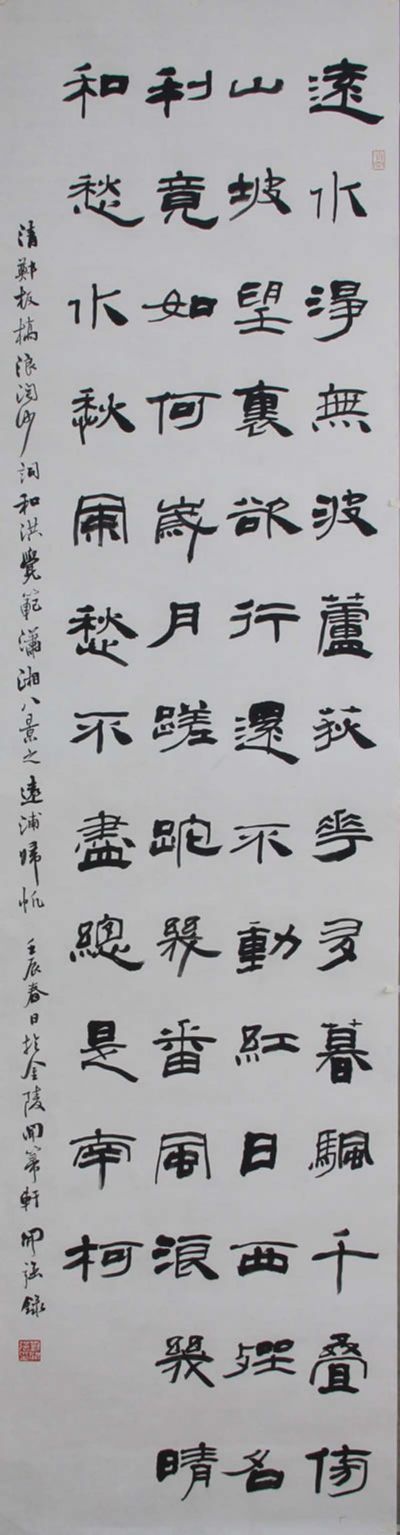 遠水淨無波蘆荻花多暮颿千疊傍
山坡望裏欲行還不動紅日西矬名
利竟如何歲月蹉跎幾番風浪幾晴
和愁水愁風愁不盡總是南柯
清鄭板橋浪淘沙詞和洪覺範瀟湘八景之遠浦歸帆 壬辰春日於金陵軒錄